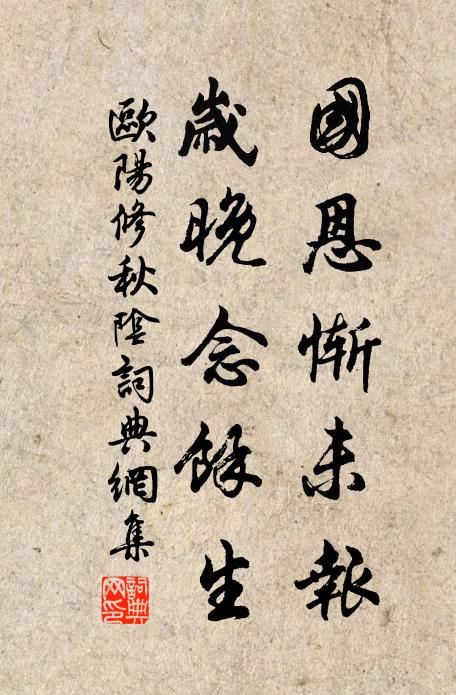 國恩慚未報
歲晚念餘生
歐陽修秋陰詞典網集
詞典網印